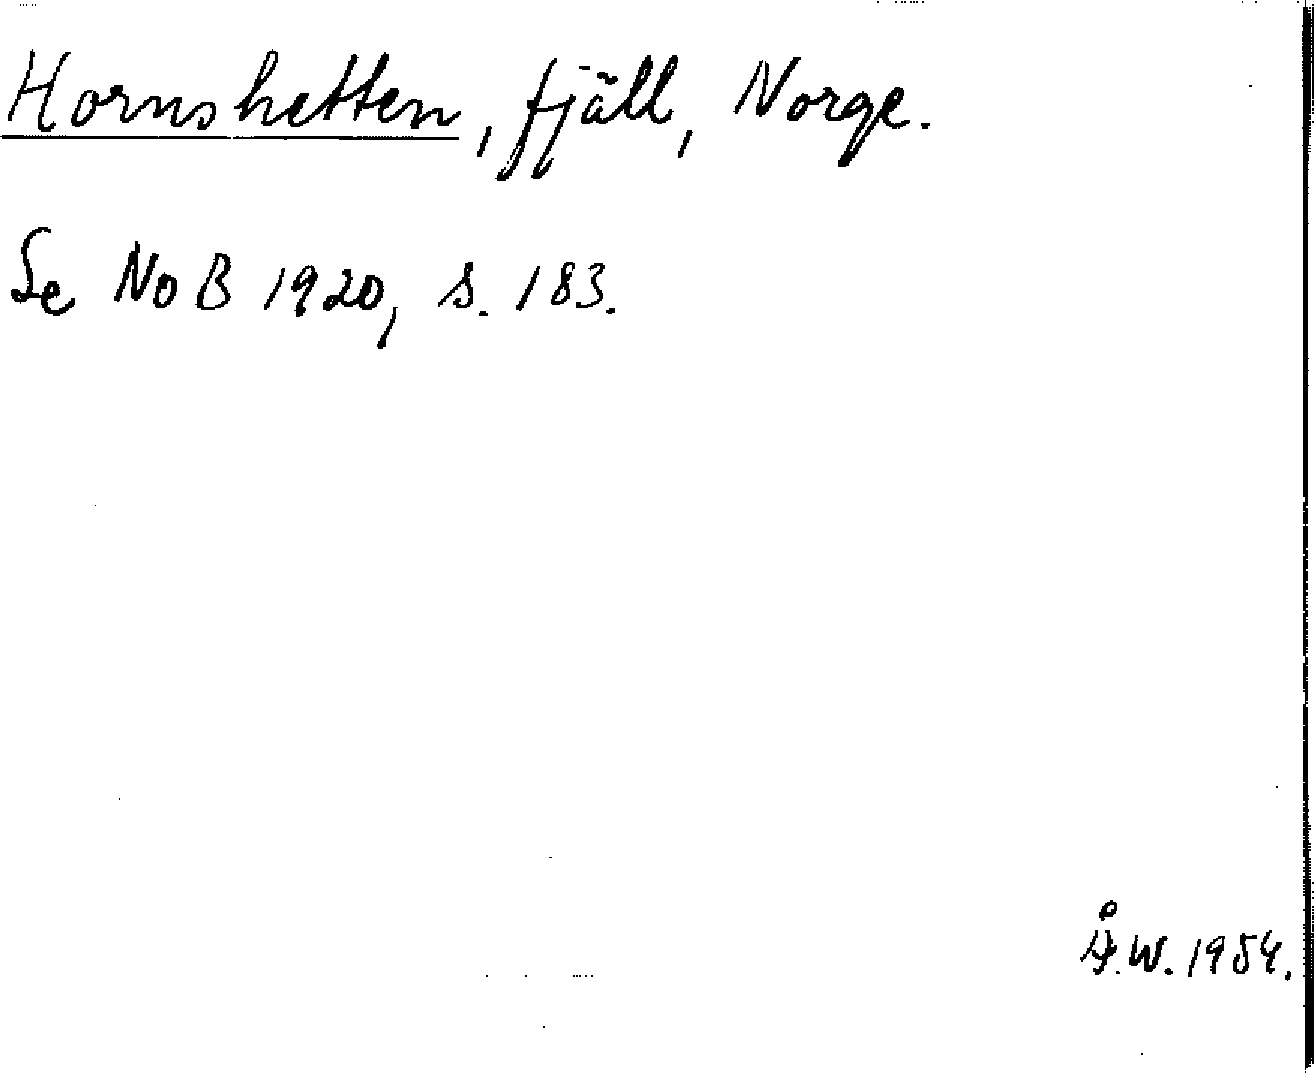 Hornshetten, fjäll, Norge.
Se NoB 1920, s. 183.
Å.W. 1954.